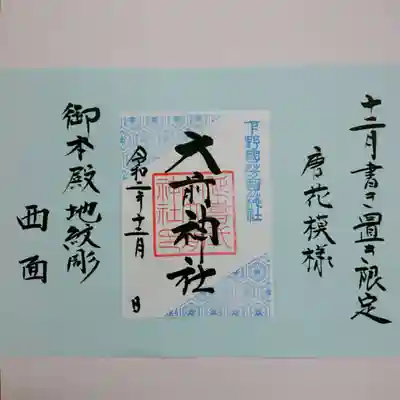 十二月書き置き限定
唐花模様
下野國芳賀総社
大前神社
令和二年十二月 日
御本殿地紋彫
西面